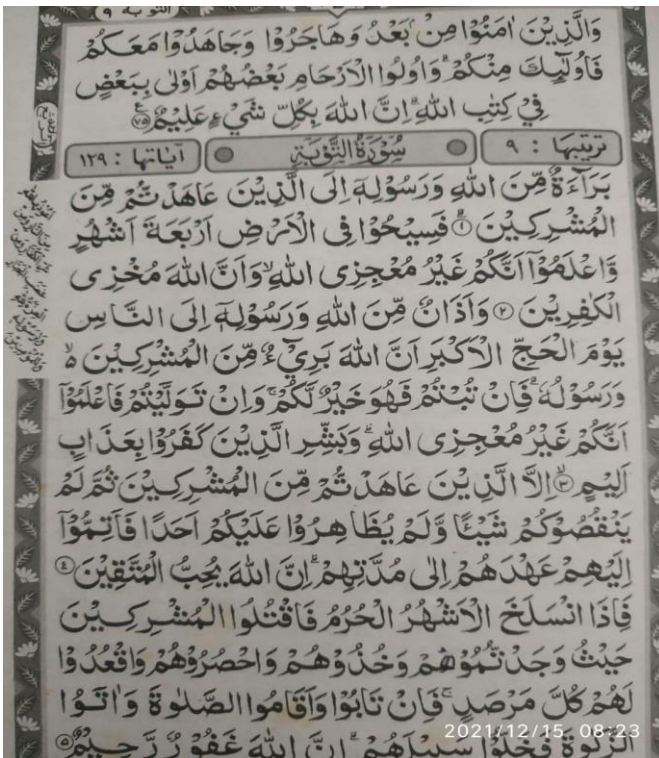 التوبة ٩
وَالَّذِيْنَ اٰمَنُوْا مِنْۢ بَعْدُ وَهَاجَرُوْا وَجَاهَدُوْا مَعَكُمْ
فَاُولٰٓئِكَ مِنْكُمْ ؕ وَاُولُوا الْاَرْحَامِ بَعْضُهُمْ اَوْلٰى بِبَعْضٍ
فِيْ كِتٰبِ اللّٰهِ ؕ اِنَّ اللّٰهَ بِكُلِّ شَيْءٍ عَلِيْمٌ ۝٧٥
ترتيبها : ٩ سُوْرَةُ التَّوْبَةِ آياتها : ١٢٩
بَرَآءَةٌ مِّنَ اللّٰهِ وَرَسُوْلِهٖۤ اِلَى الَّذِيْنَ عَاهَدْتُّمْ مِّنَ
الْمُشْرِكِيْنَ ۝١ فَسِيْحُوْا فِى الْاَرْضِ اَرْبَعَةَ اَشْهُرٍ
وَّاعْلَمُوْۤا اَنَّكُمْ غَيْرُ مُعْجِزِى اللّٰهِ ۙ وَاَنَّ اللّٰهَ مُخْزِى
الْكٰفِرِيْنَ ۝٢ وَاَذَانٌ مِّنَ اللّٰهِ وَرَسُوْلِهٖۤ اِلَى النَّاسِ
يَوْمَ الْحَجِّ الْاَكْبَرِ اَنَّ اللّٰهَ بَرِيْٓءٌ مِّنَ الْمُشْرِكِيْنَ ۙ۬
وَرَسُوْلُهٗ ؕ فَاِنْ تُبْتُمْ فَهُوَ خَيْرٌ لَّكُمْ ۚ وَاِنْ تَوَلَّيْتُمْ فَاعْلَمُوْۤا
اَنَّكُمْ غَيْرُ مُعْجِزِى اللّٰهِ ؕ وَبَشِّرِ الَّذِيْنَ كَفَرُوْا بِعَذَابٍ
اَلِيْمٍ ۝٣ اِلَّا الَّذِيْنَ عَاهَدْتُّمْ مِّنَ الْمُشْرِكِيْنَ ثُمَّ لَمْ
يَنْقُصُوْكُمْ شَيْـًٔا وَّلَمْ يُظَاهِرُوْا عَلَيْكُمْ اَحَدًا فَاَتِمُّوْۤا
اِلَيْهِمْ عَهْدَهُمْ اِلٰى مُدَّتِهِمْ ؕ اِنَّ اللّٰهَ يُحِبُّ الْمُتَّقِيْنَ ۝٤
فَاِذَا انْسَلَخَ الْاَشْهُرُ الْحُرُمُ فَاقْتُلُوا الْمُشْرِكِيْنَ
حَيْثُ وَجَدْتُّمُوْهُمْ وَخُذُوْهُمْ وَاحْصُرُوْهُمْ وَاقْعُدُوْا
لَهُمْ كُلَّ مَرْصَدٍ ۚ فَاِنْ تَابُوْا وَاَقَامُوا الصَّلٰوةَ وَاٰتَوُا
الزَّكٰوةَ فَخَلُّوْا سَبِيْلَهُمْ ؕ اِنَّ اللّٰهَ غَفُوْرٌ رَّحِيْمٌ ۝٥
2021/12/15 08:23